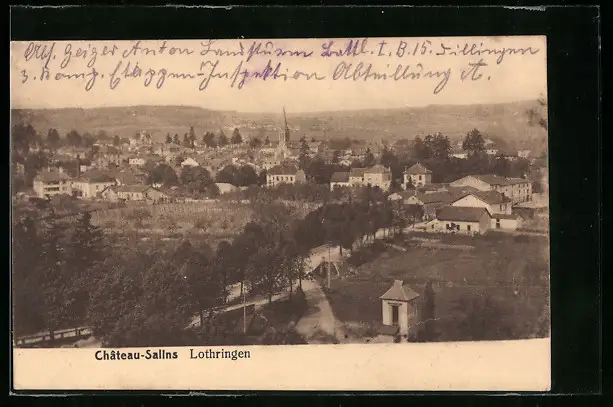 Abs. Geiger Anton Landsturm Battl. I. B. 15. Dillingen
3. Komp. Etappen-Inspektion Abteilung A.
Château-Salins Lothringen